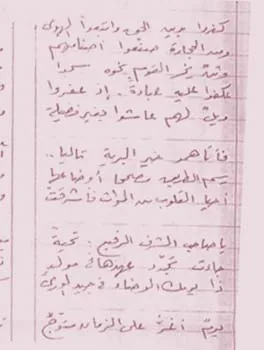 كفروا بدين الحق واتبعوا الهوى
ومن الحجارة صنعوا أصنامهم
وثنٌ يخر القوم نحوه سجدا
عكفوا عليه عبادة. إذ عفروا
ويلٌ لهم عاشوا بغير فضيلة
فأتاهمُ خير البرية تاليا..
يرسم الطريق مصححا أوضاعها
أحيا القلوب من الموات فأشرقت
يا صاحب الشرف الرفيع: تحيةً
جاءت تجدد عهدها في مولدٍ
ذا يومك الوضاء في جيد الورى
يومٌ أغرُّ على الزمان متوجٌ